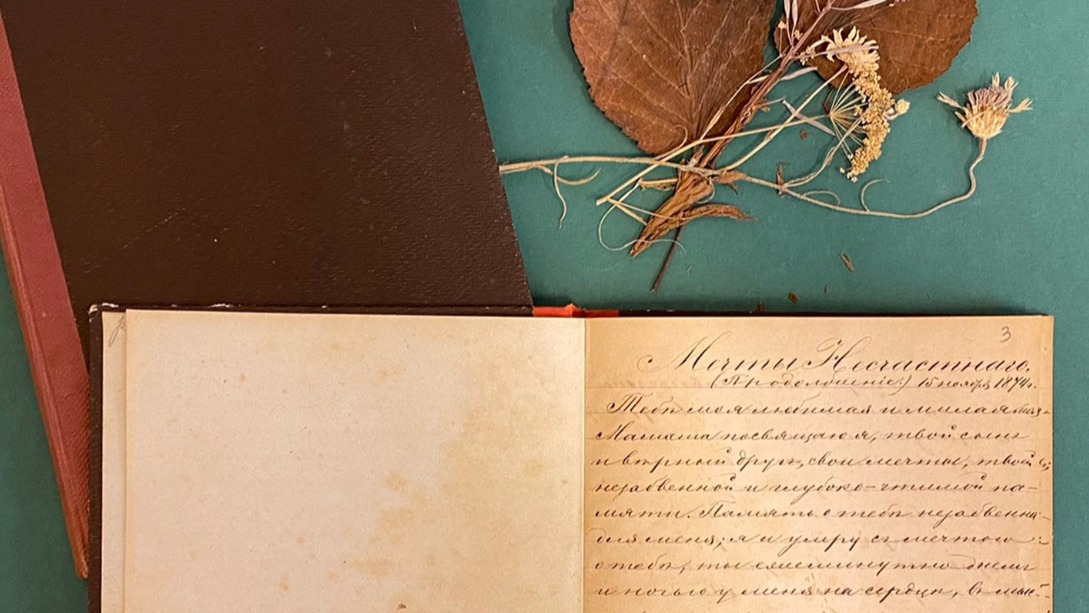 3
Мечты Несчастнаго.
(Продолженіе.) 15 ноября 1874г.
Тебѣ моя любимая и милая
Мамаша посвящаю я, твой сынъ
и вѣрный другъ, свои мечты, твоей
незабвенной и глубоко-чтимой па-
мяти. Память о тебѣ незабвенна
для меня; я и умру съ мечтою
о тебѣ, ты ежеминутно днемъ
и ночью у меня на сердцѣ, въ мыс-